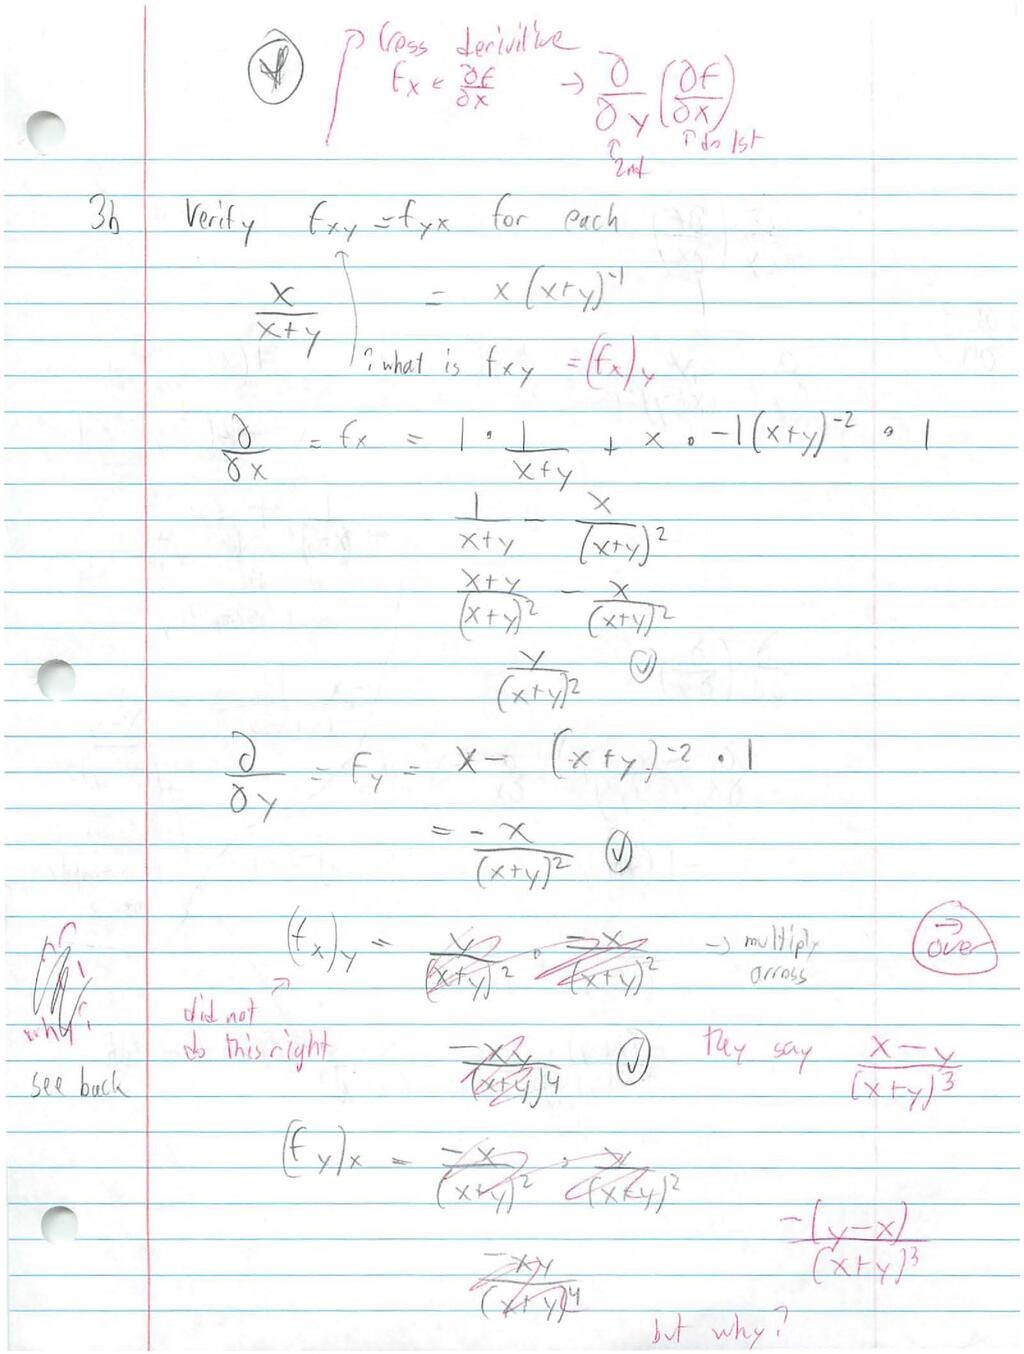 Cross derivitive
fx ← ∂f/∂x → ∂/∂y (∂f/∂x)
↑ 2nd ↑ do 1st
3b Verify fxy = fyx for each
x/(x+y) = x(x+y)^-1
? what is fxy = (fx)y
∂/∂x = fx = 1 · 1/(x+y) + x · -1(x+y)^-2 · 1
1/(x+y) - x/(x+y)^2
(x+y)/(x+y)^2 - x/(x+y)^2
y/(x+y)^2 ✓
∂/∂y = fy = x - (x+y)^-2 · 1
= -x/(x+y)^2 ✓
(fx)y = y/(x+y)^2 · -x/(x+y)^2 → multiply across
→ over
did not do this right
why?
see back
-xy/(x+y)^4 ✓ they say (x-y)/(x+y)^3
(fy)x = -x/(x+y)^2 · y/(x+y)^2
-(y-x)/(x+y)^3
-xy/(x+y)^4
but why?